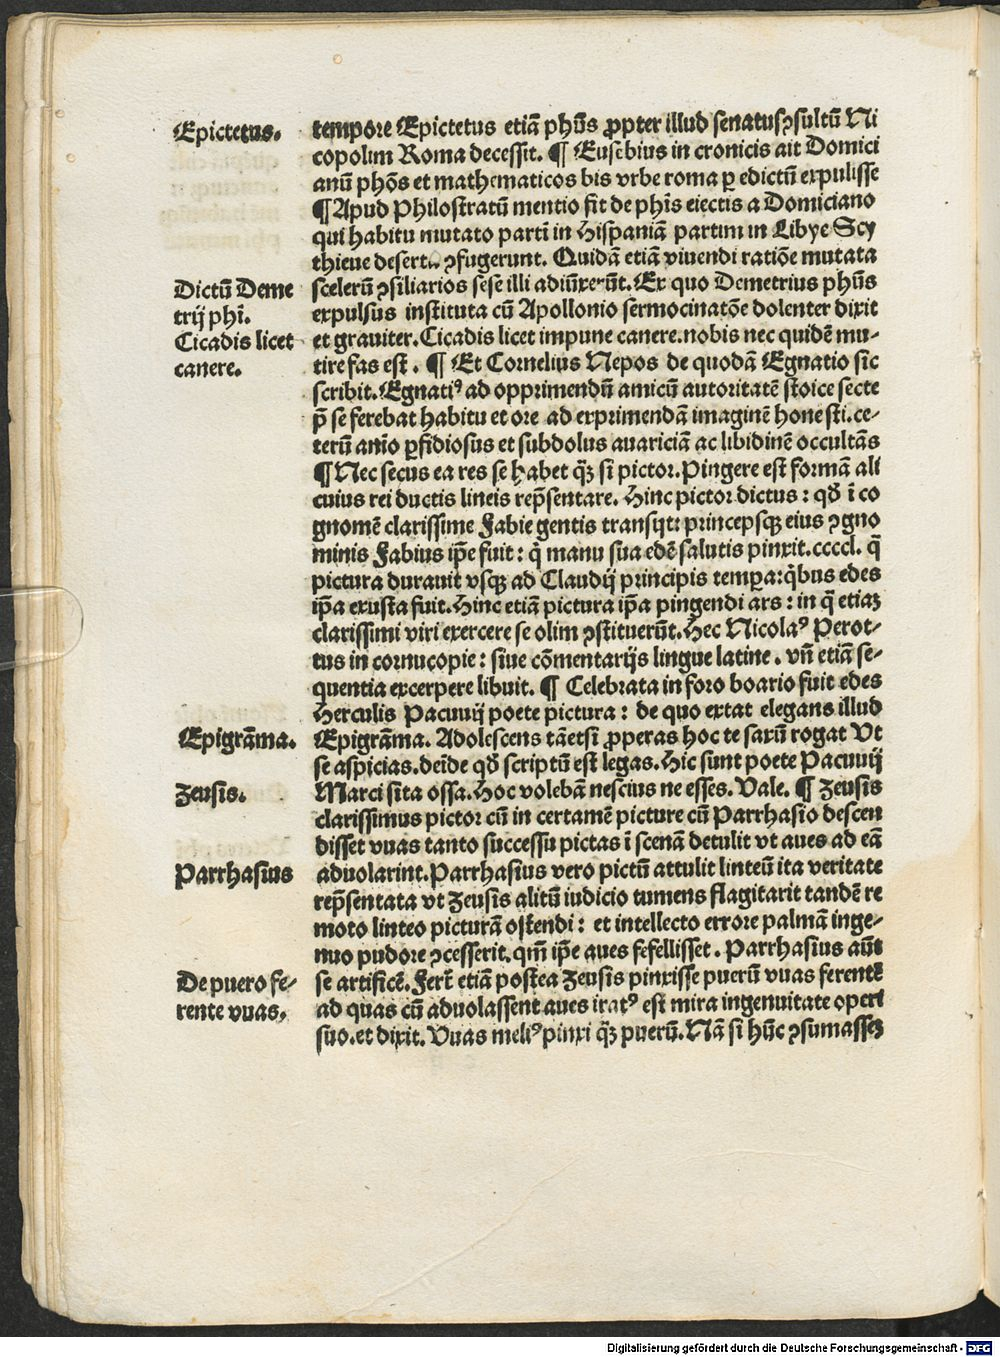 Epictetus.
tempore Epictetus etiã phūs ꝓpter illud senatusꝯsultū Ni
copolim Roma decessit. ¶ Eusebius in cronicis ait Domici
anū phōs et mathematicos bis vrbe roma ꝑ edictū expulisse
¶ Apud Philostratū mentio fit de phīs eiectis a Domiciano
qui habitu mutato partī in Hispaniã partim in Libye Scy
thieue desert ꝯfugerunt. Quidã etiã viuendi ratiōe mutata
Dictū Deme
trij phī.
Cicadis licet
canere.
scelerū ꝯsiliarios sese illi adiūxerūt. Ex quo Demetrius phūs
expulsus instituta cū Apollonio sermocinatōe dolenter dixit
et grauiter. Cicadis licet impune canere. nobis nec quidē mu-
tire fas est. ¶ Et Cornelius Nepos de quodã Egnatio sic
scribit. Egnatiꝰ ad opprimendū amicū autoritatē stoice secte
p̄ se ferebat habitu et ore ad exprimendã imaginē honesti. ce-
terū anīo ꝑfidiosus et subdolus auariciã ac libidinē occultãs
¶ Nec secus ea res se habet q̄ꝫ si pictor. Pingere est formã ali
cuius rei ductis lineis rep̄sentare. Hinc pictor dictus: qđ ī co
gnomē clarissime Fabie gentis transijt: princepsqꝫ eius ꝯgno
minis Fabius ip̄e fuit: q̇ manu sua edē salutis pinxit. ccccl. q̄
pictura durauit vsqꝫ ad Claudij principis tempa: q̇bus edes
ip̄a exusta fuit. Hinc etiã pictura ip̄a pingendi ars: in q̄ etiaꝫ
clarissimi viri exercere se olim ꝯstituerūt. Hec Nicolaꝰ Perot-
tus in cornucopie: siue cōmentarijs lingue latine. vn̄ etiã se-
quentia excerpere libuit. ¶ Celebrata in foro boario fuit edes
Herculis Pacuuij poete pictura: de quo extat elegans illud
Epigrãma.
Epigrãma. Adolescens tãetsi ꝓperas hoc te saxū rogat Vt
se aspicias. deīde qđ scriptū est legas. Hic sunt poete Pacuuij
Zeusis.
Marci sita ossa. Hoc volebã nescius ne esses. Vale. ¶ Zeusis
clarissimus pictor cū in certamē picture cū Parrhasio descen
disset vuas tanto successu pictas ī scenã detulit vt aues ad eã
Parrhasius
aduolarint. Parrhasius vero pictū attulit linteū ita veritate
rep̄sentata vt Zeusis alitū iudicio tumens flagitarit tandē re
moto linteo picturã ostendi: et intellecto errore palmã inge-
nuo pudore ꝯcesserit. qm̄ ip̄e aues fefellisset. Parrhasius aūt
De puero fe-
rente vuas.
se artificē. Ferť etiã postea Zeusis pinxisse puerū vuas ferentē
ad quas cū aduolassent aues iratꝰ est mira ingenuitate operi
suo. et dixit. Vuas meliꝰ pinxi q̄ꝫ puerū. Nã si hūc ꝯsumasseꝫ
Digitalisierung gefördert durch die Deutsche Forschungsgemeinschaft - DFG